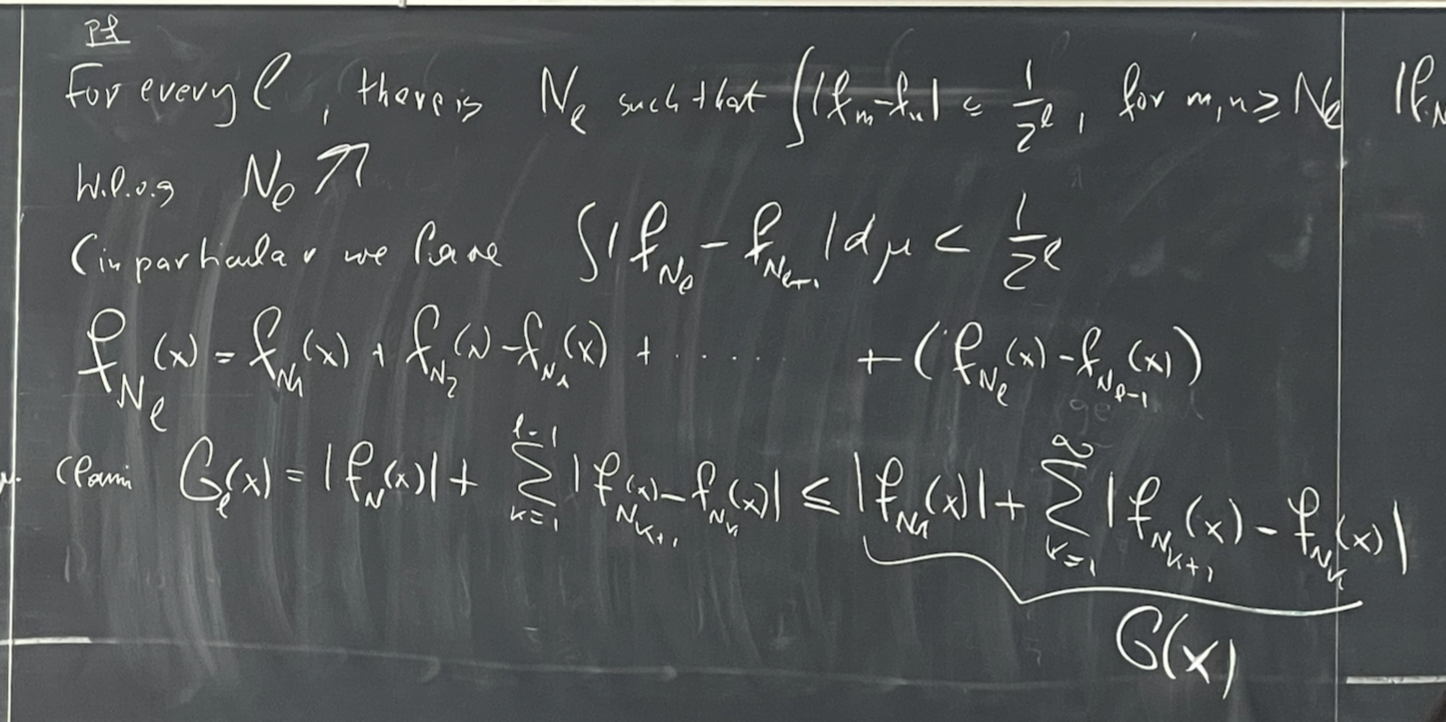 Pf
For every ℓ, there is N_ℓ such that ∫|f_m-f_n| ≤ 1/2^ℓ, for m,n ≥ N_ℓ |f_N
W.l.o.g N_ℓ ↗
(in particular we have ∫|f_{N_ℓ} - f_{N_{ℓ+1}}|dμ < 1/2^ℓ
f_{N_ℓ}(x) = f_{N_1}(x) + f_{N_2}(x) - f_{N_1}(x) + ..... + (f_{N_ℓ}(x) - f_{N_{ℓ-1}}(x))
Claim G_ℓ(x) = |f_N(x)| + ∑_{k=1}^{ℓ-1} |f_{N_{k+1}}(x) - f_{N_k}(x)| ≤ |f_{N_1}(x)| + ∑_{k=1}^{∞} |f_{N_{k+1}}(x) - f_{N_k}(x)|
G(x)